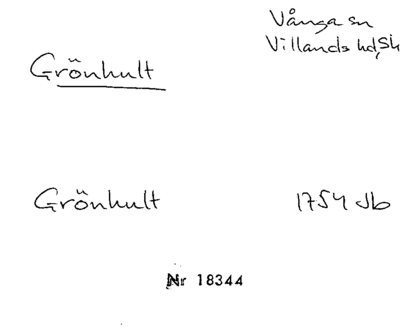 Vånga sn
Villands hd, Sk
Grönhult
Grönhult 1754 Jb
Nr 18344